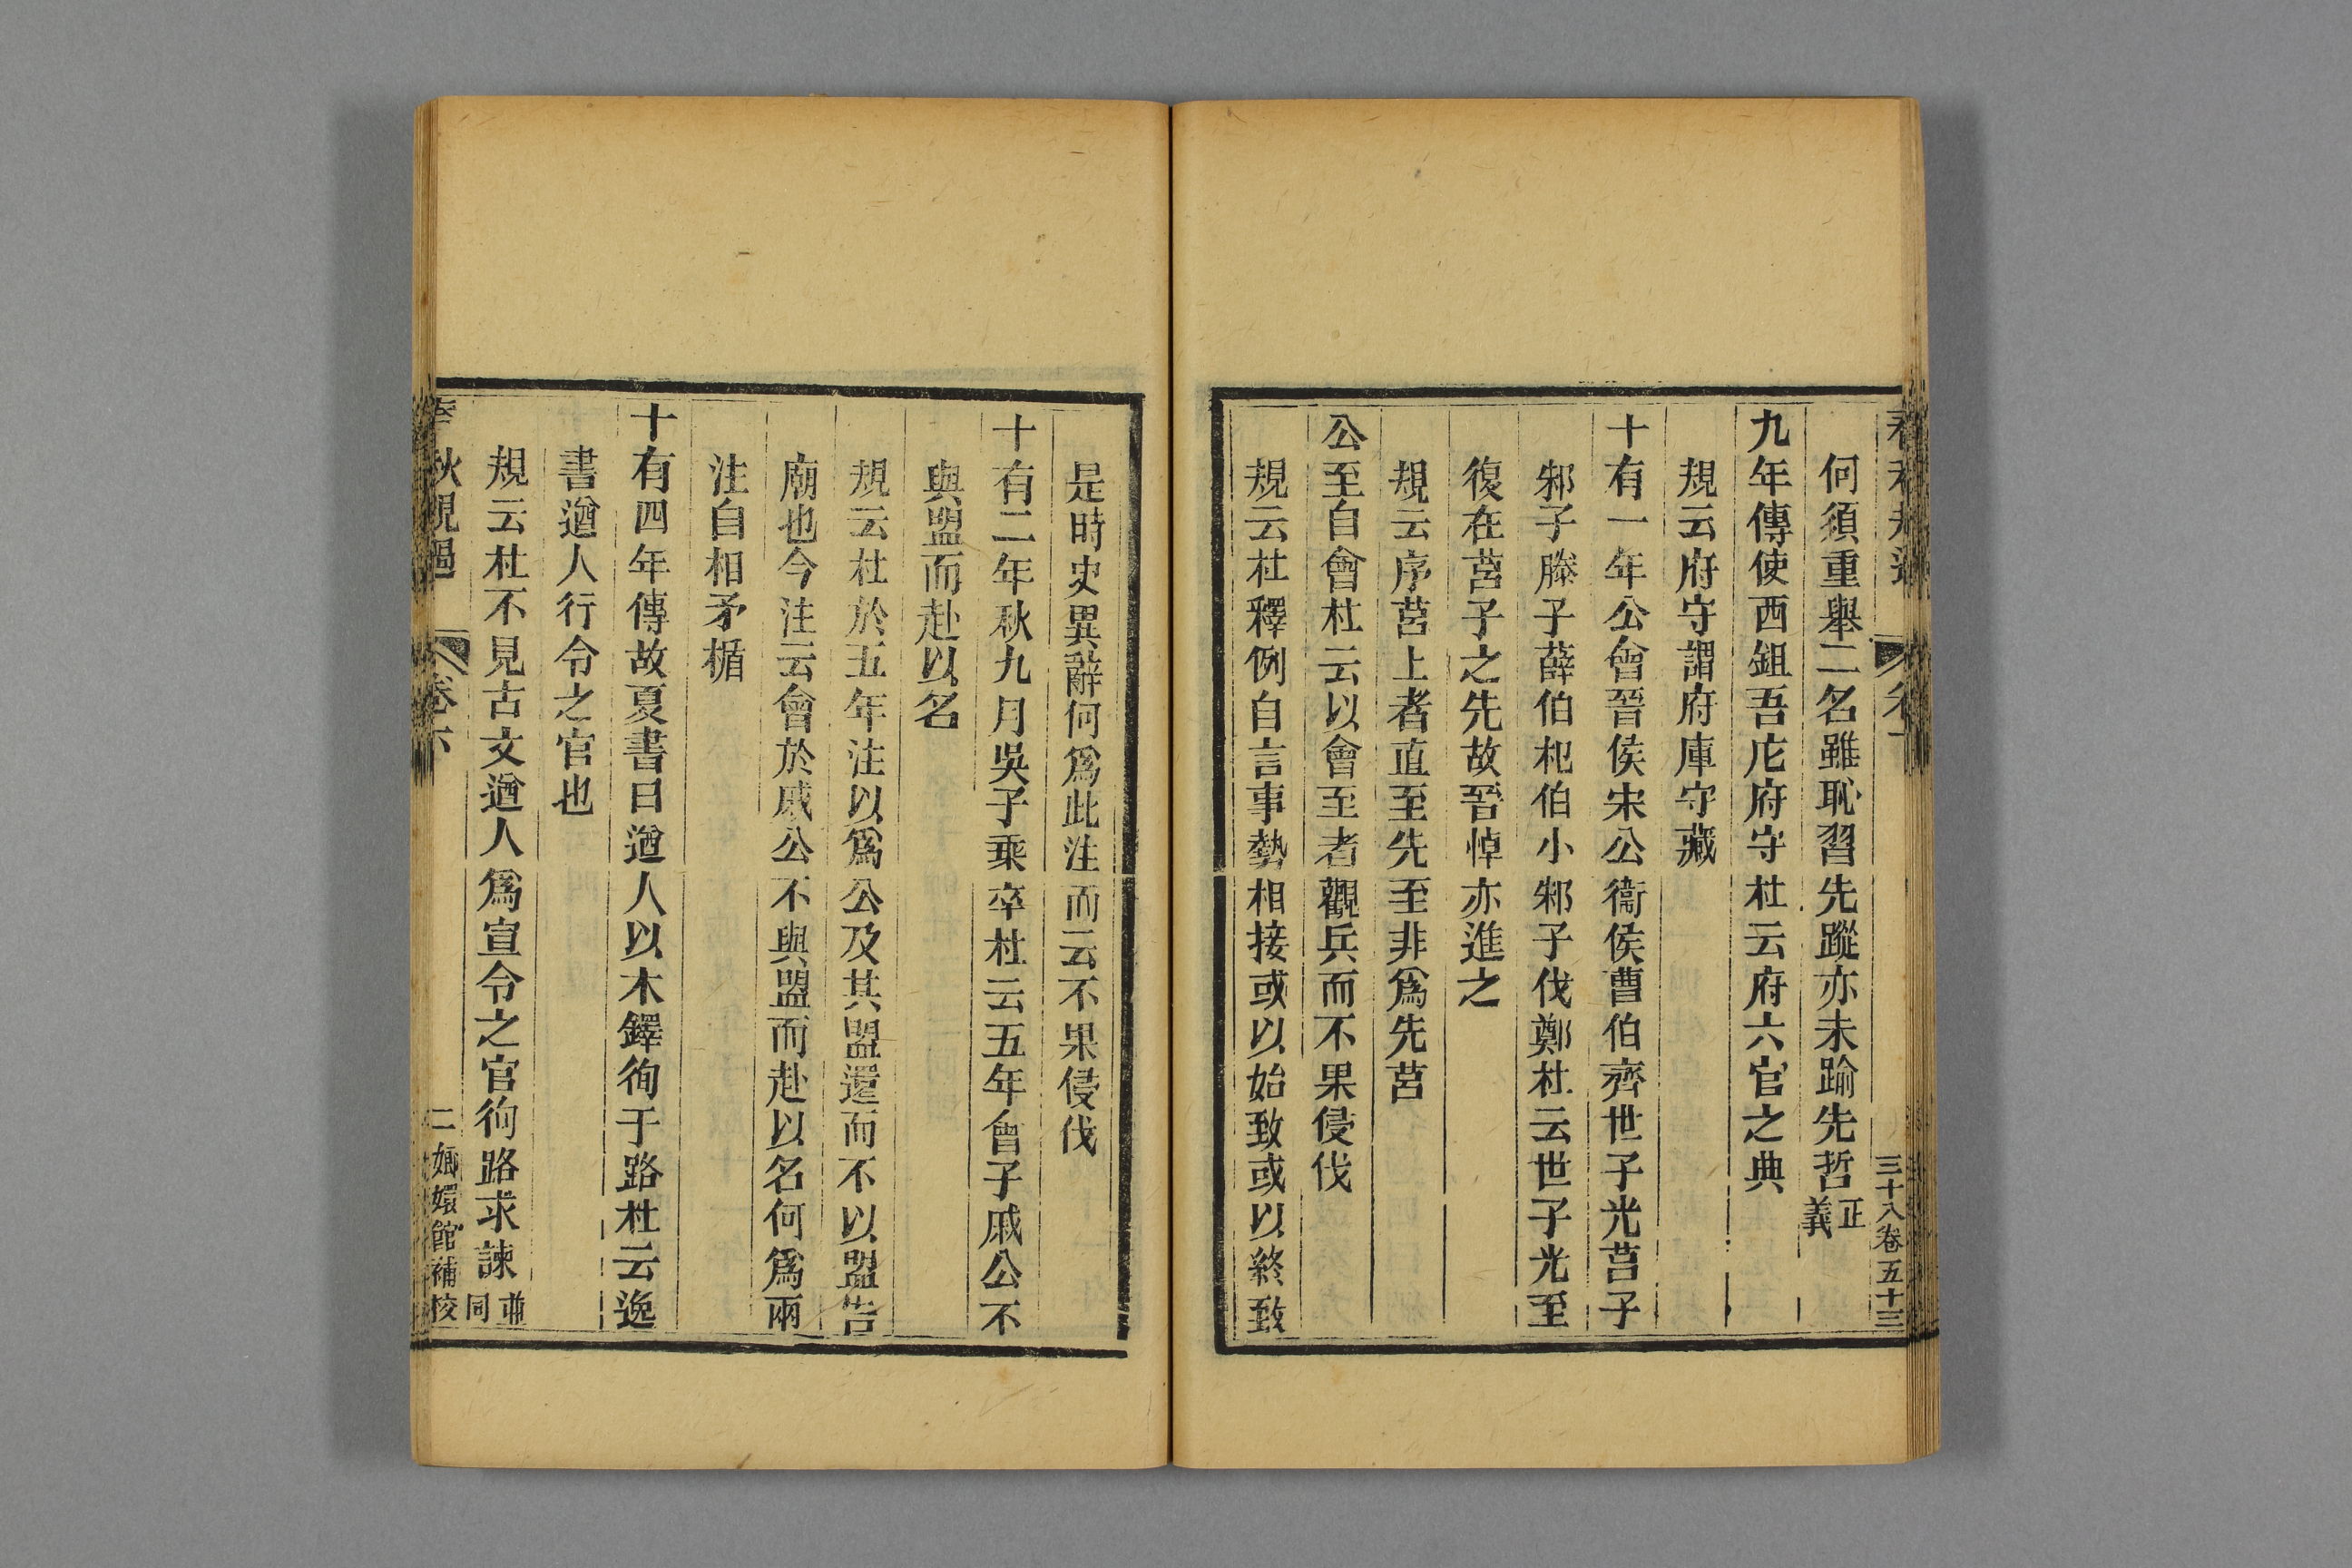 三十八卷五十三
何須重舉二名雖恥習先蹤亦未踰先哲正義
九年傳使西鉏吾庀府守杜云府六官之典
規云府守謂府庫守藏
十有一年公會晉侯宋公衞侯曹伯齊世子光莒子
邾子滕子薛伯杞伯小邾子伐鄭杜云世子光至
復在莒子之先故晉悼亦進之
規云序莒上者直至先至非爲先莒
公至自會杜云以會至者觀兵而不果侵伐
規云杜釋例自言事勢相接或以始致或以終致
是時史異辭何爲此注而云不果侵伐
十有二年秋九月吳子乘卒杜云五年會于戚公不
與盟而赴以名
規云杜於五年注以爲公及其盟還而不以盟告
廟也今注云會於戚公不與盟而赴以名何爲兩
注自相矛楯
十有四年傳故夏書曰遒人以木鐸徇于路杜云逸
書遒人行令之官也
規云杜不見古文遒人爲宣令之官徇路求諫並同
秋規過 卷六 二嫏嬛館補校